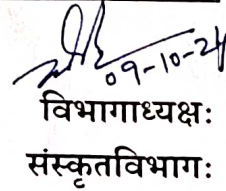 09-10-24
विभागाध्यक्षः
संस्कृतविभागः